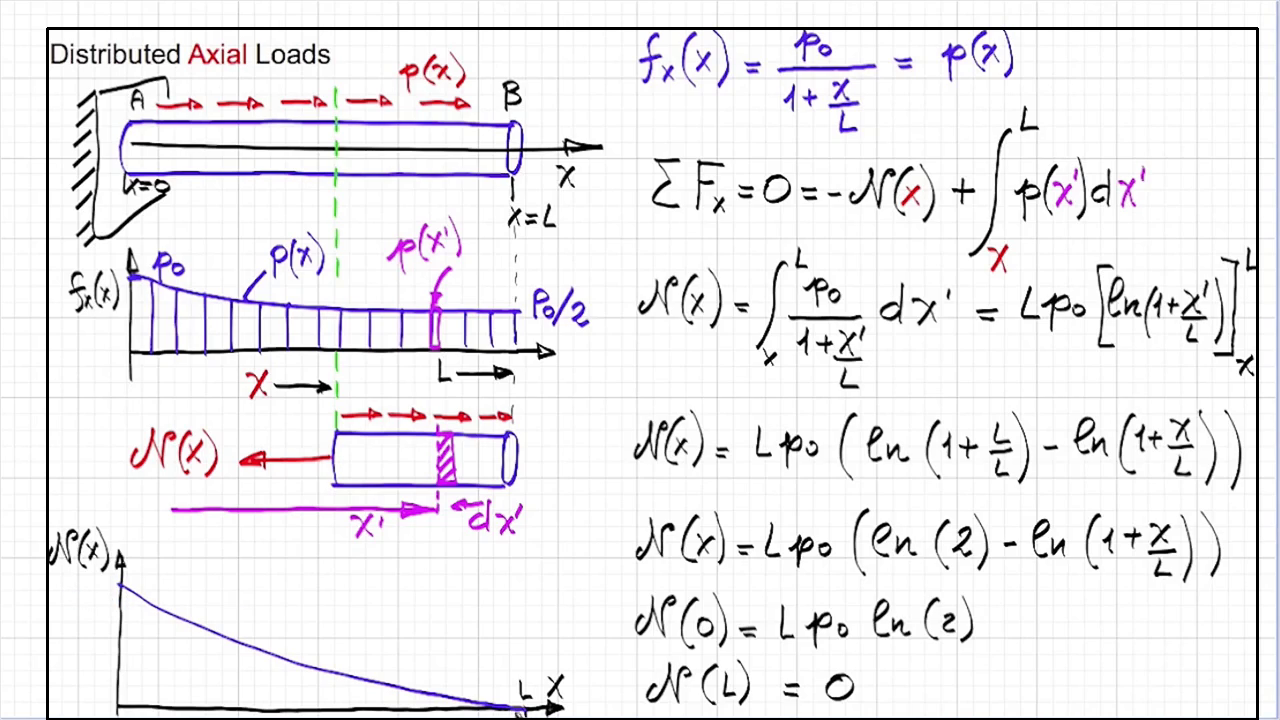 Distributed Axial Loads
p(x)
A
B
x=0
x
x=L
f_x(x)
p₀
p(x)
p(x')
p₀/2
x
L
N(x)
x'
dx'
N(x)
L x
f_x(x) = p₀/(1+x/L) = p(x)
ΣF_x = 0 = -N(x) + ∫_x^L p(x')dx'
N(x) = ∫_x^L p₀/(1+x'/L) dx' = Lp₀[ln(1+x'/L)]_x^L
N(x) = Lp₀(ln(1+L/L) - ln(1+x/L))
N(x) = Lp₀(ln(2) - ln(1+x/L))
N(0) = Lp₀ ln(2)
N(L) = 0